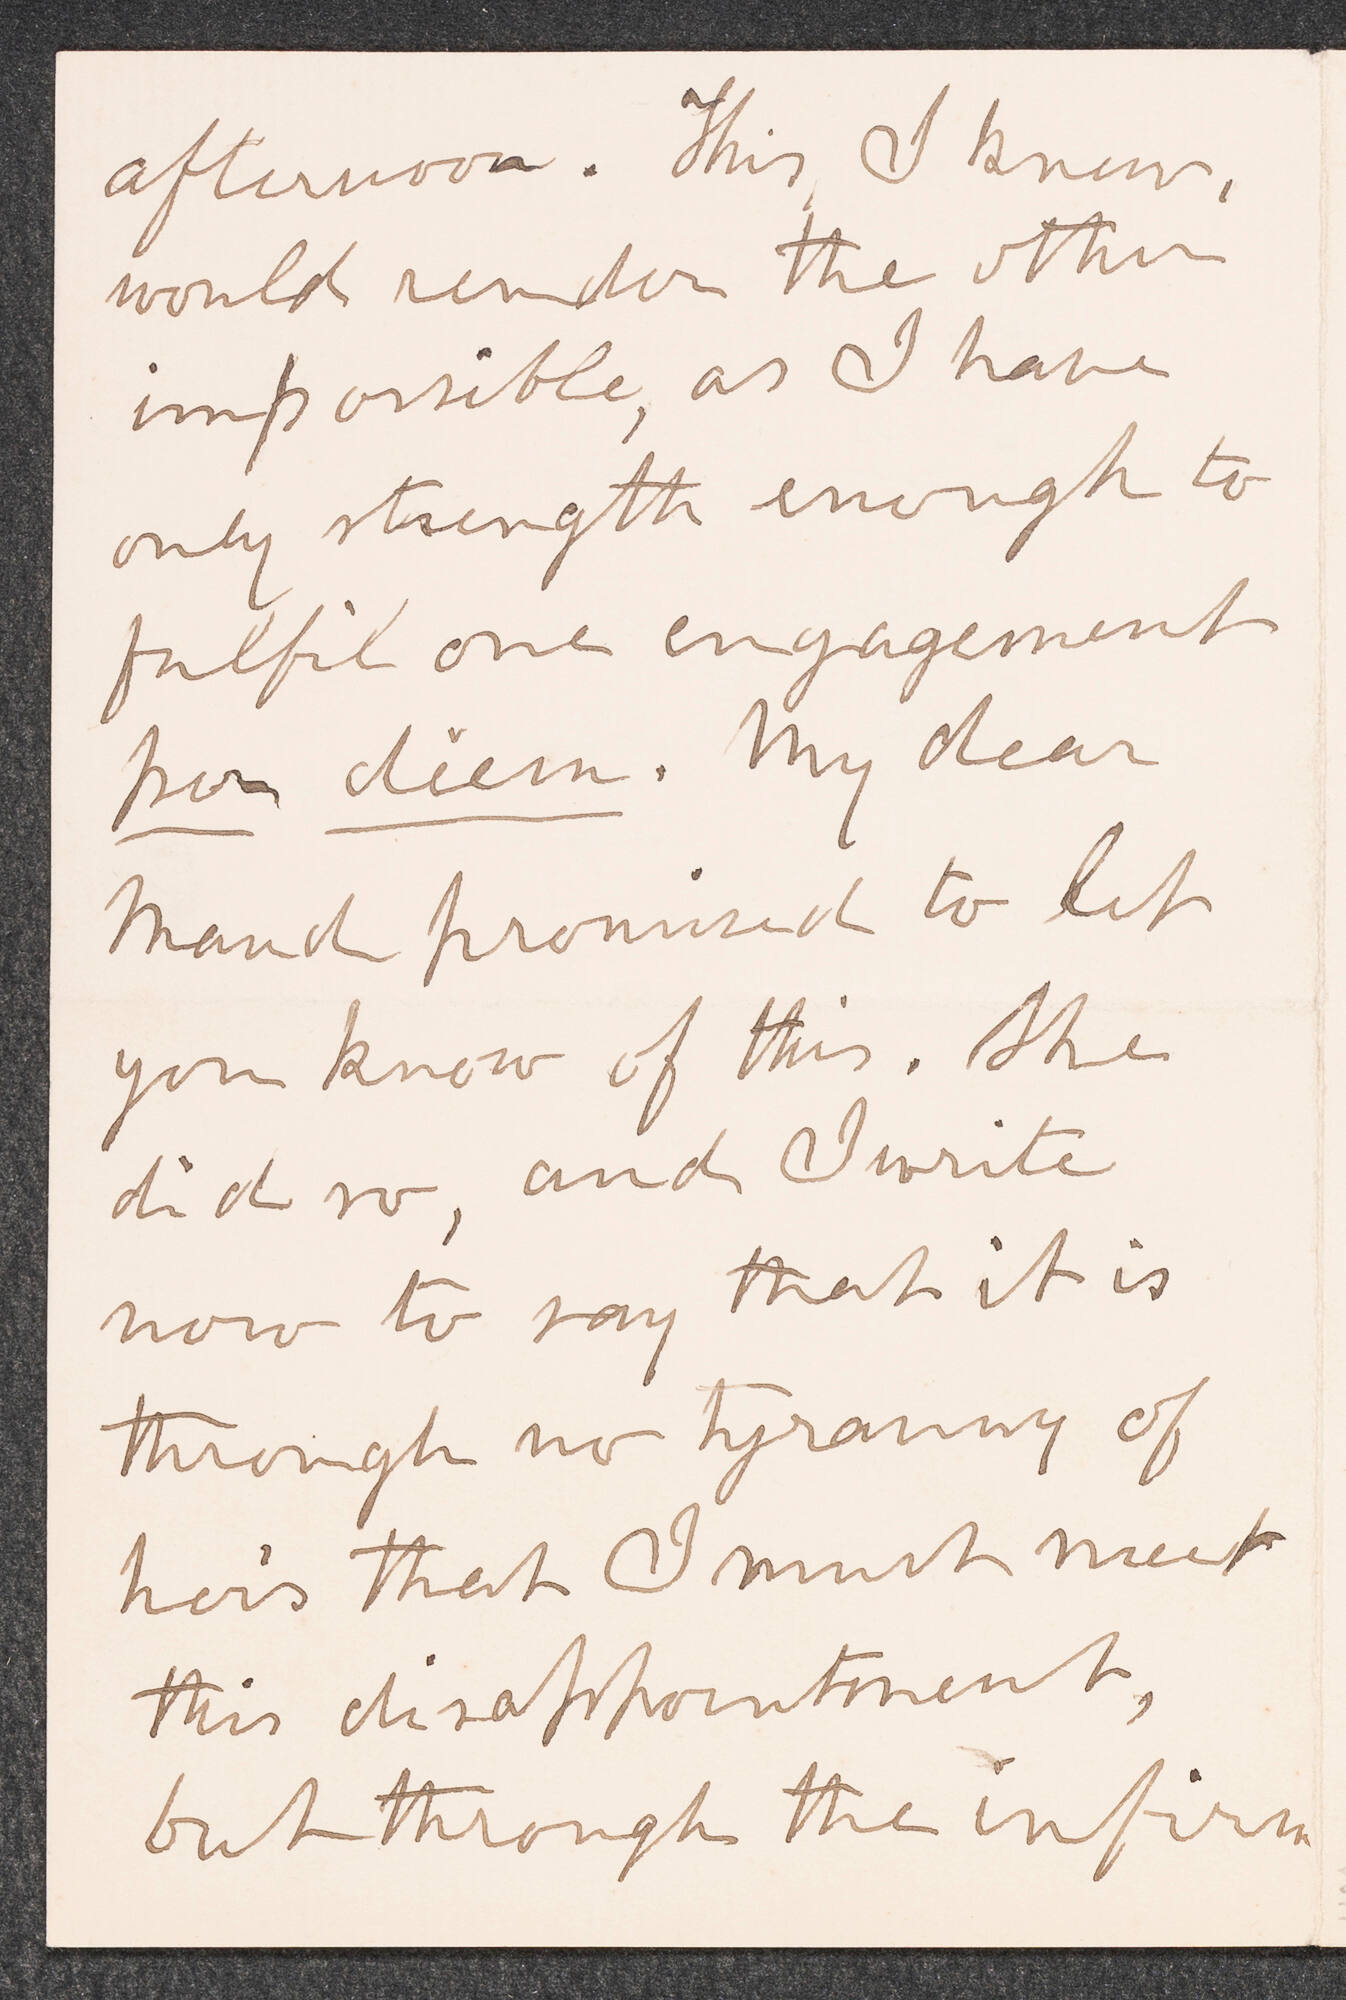 afternoon. This, I knew,
would render the other
impossible, as I have
only strength enough to
fulfil one engagement
per diem. My dear
Maud promised to let
you know of this. She
did so, and I write
now to say that it is
through no tyranny of
her's that I must meet
this disappointment,
but through the infirm